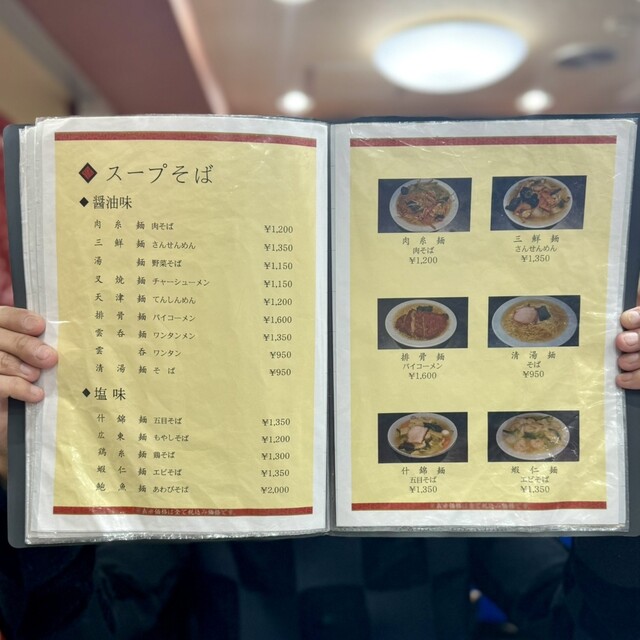 スープそば
醤油味
肉糸麺 肉そば ¥1,200
三鮮麺 さんせんめん ¥1,350
湯麺 野菜そば ¥1,150
叉焼麺 チャーシューメン ¥1,150
天津麺 てんしんめん ¥1,200
排骨麺 パイコーメン ¥1,600
雲呑麺 ワンタンメン ¥1,350
雲呑 ワンタン ¥950
清湯麺 そば ¥950
塩味
什錦麺 五目そば ¥1,350
広東麺 もやしそば ¥1,200
鶏糸麺 鶏そば ¥1,300
蝦仁麺 エビそば ¥1,350
鮑魚麺 あわびそば ¥2,000
※表示価格は全て税込の価格です。
肉糸麺
肉そば
¥1,200
三鮮麺
さんせんめん
¥1,350
排骨麺
パイコーメン
¥1,600
清湯麺
そば
¥950
什錦麺
五目そば
¥1,350
蝦仁麺
エビそば
¥1,350
※表示価格は全て税込の価格です。